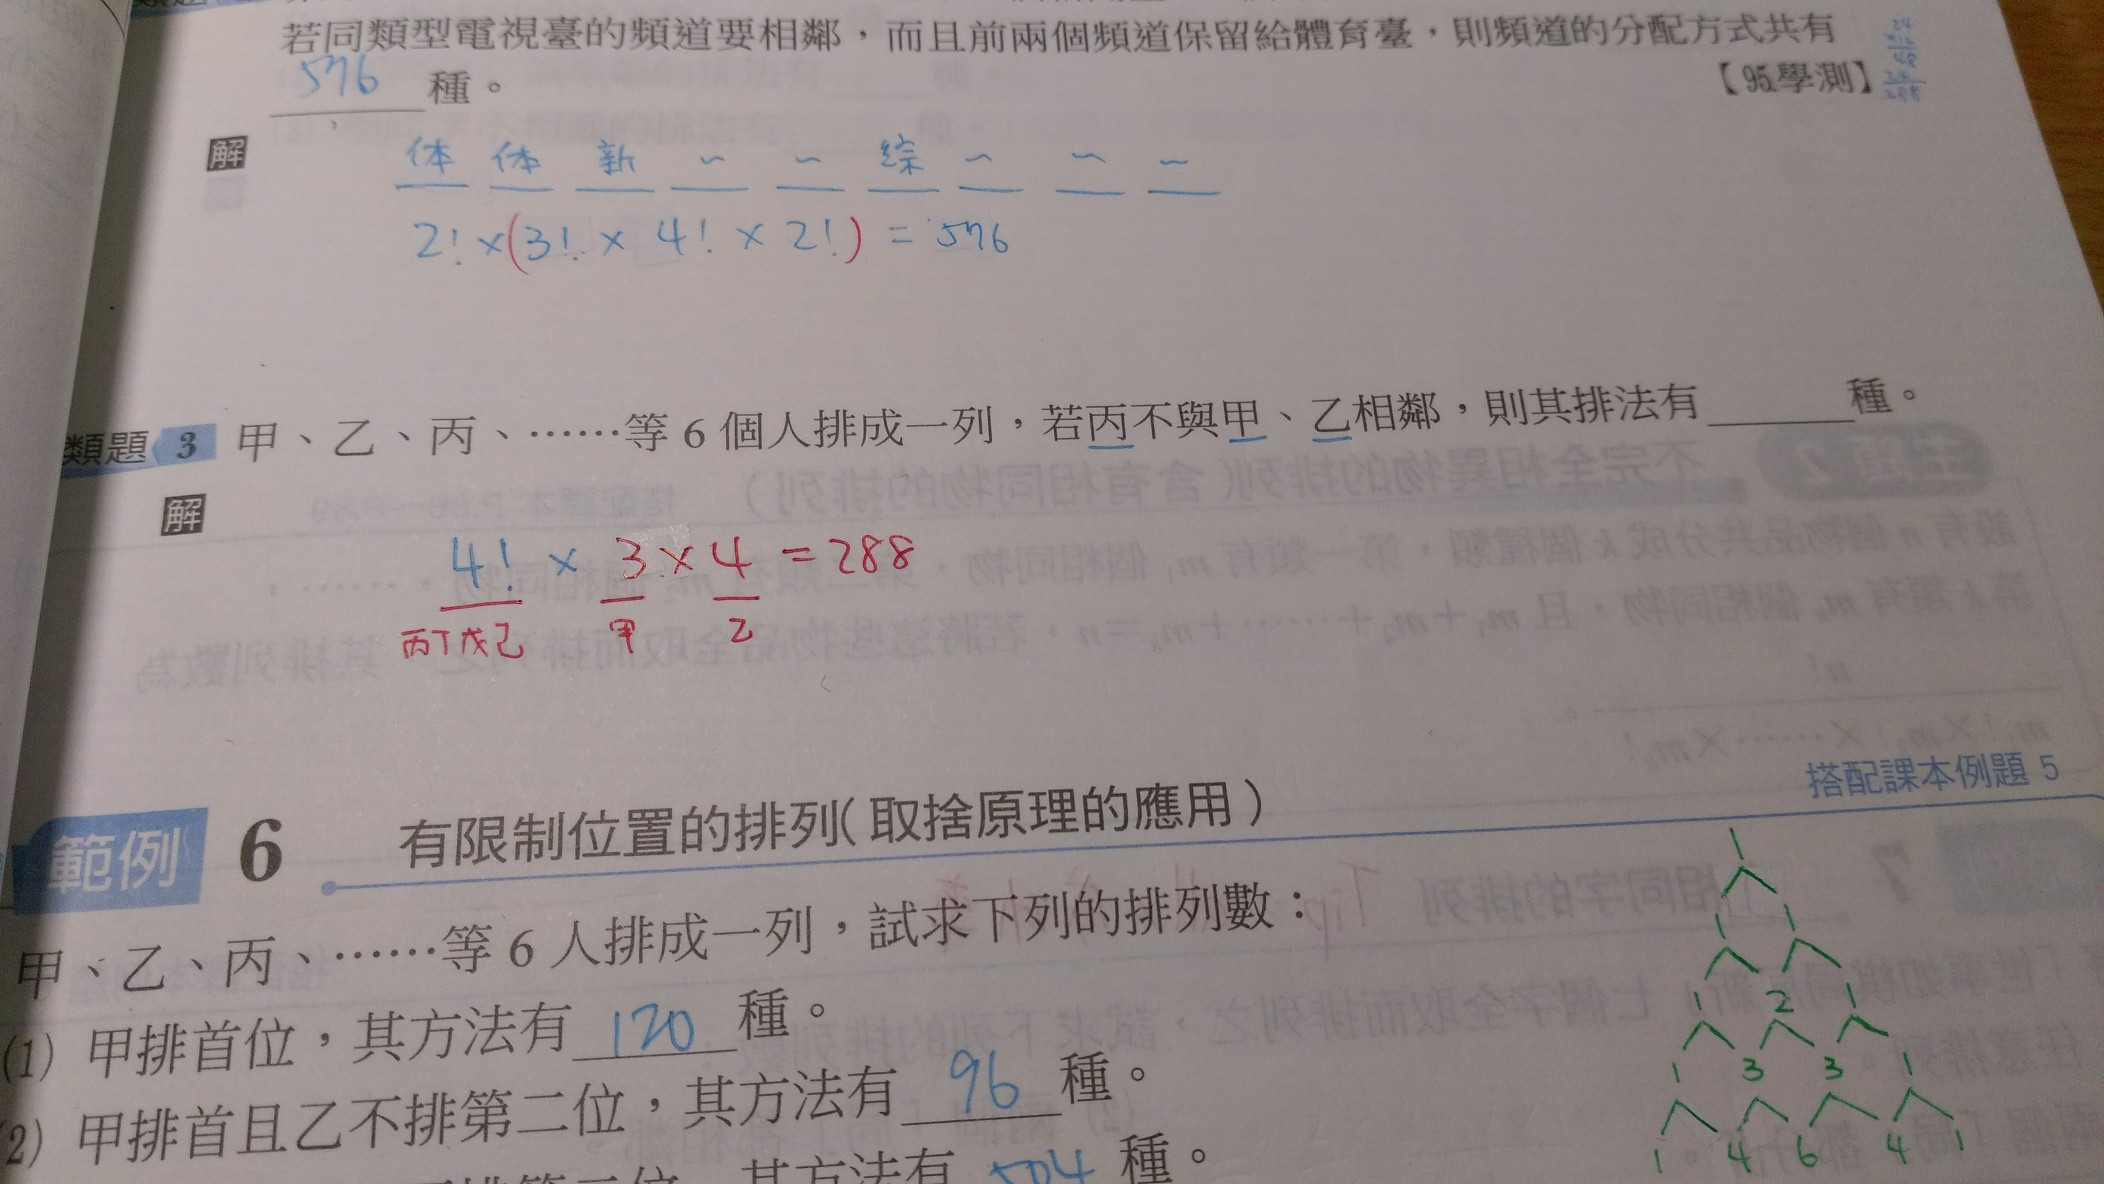 若同類型電視臺的頻道要相鄰，而且前兩個頻道保留給體育臺，則頻道的分配方式共有
576 種。
【95.學測】
解
体 体 新 ~ ~ 綜 ~ ~ ~
2! × (3! × 4! × 2!) = 576
類題 3 甲、乙、丙、……等 6 個人排成一列，若丙不與甲、乙相鄰，則其排法有______種。
解
4! × 3 × 4 = 288
丙丁戊己 甲 乙
搭配課本例題 5
範例 6 有限制位置的排列(取捨原理的應用)
甲、乙、丙、……等 6 人排成一列，試求下列的排列數：
(1) 甲排首位，其方法有 120 種。
(2) 甲排首且乙不排第二位，其方法有 96 種。
其方法有 504 種。
1
1 1
1 2 1
1 3 3 1
1 4 6 4 1